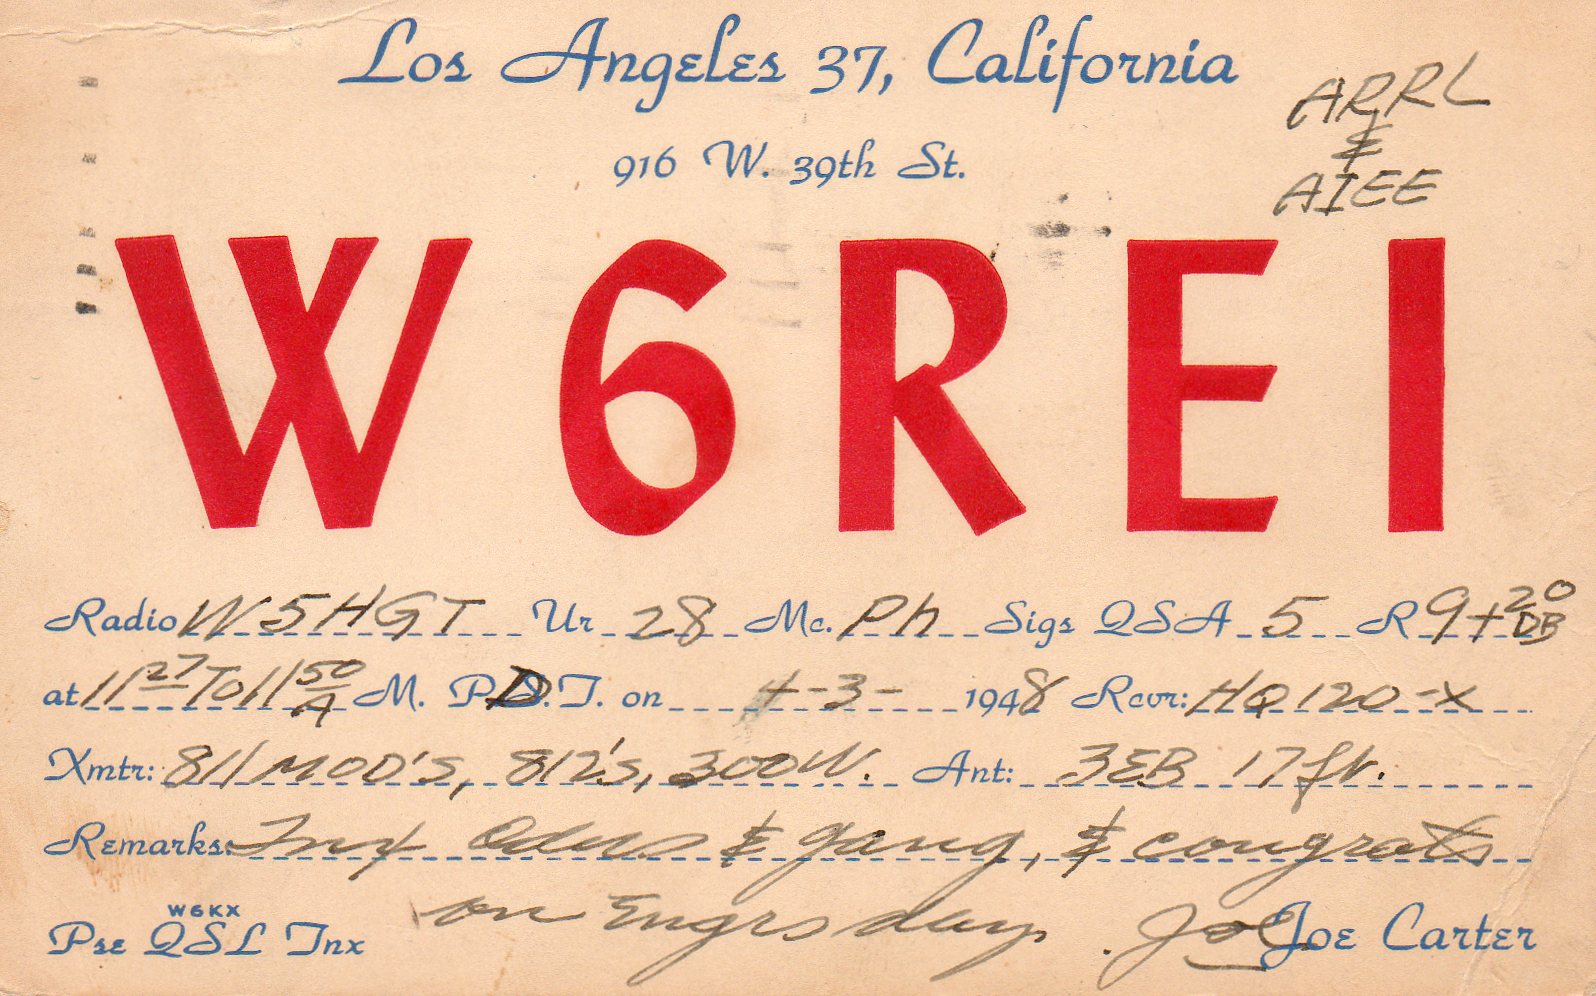 Los Angeles 37, California
916 W. 39th St.
ARRL
&
AIEE
W6REI
Radio W5HGT Ur 28 Mc. Ph Sigs QSA 5 R 9+20 DB
at 11 27 To 11 50 A M. P.D.T. on -3- 1948 Rcvr: HQ 120-X
Xmtr: 811 MOD'S, 812's, 300W. Ant: 3EB 17ft.
Remarks: Tnx & gang, & congrats
on Engrs day. Joe Joe Carter
W6KX
Pse QSL Tnx